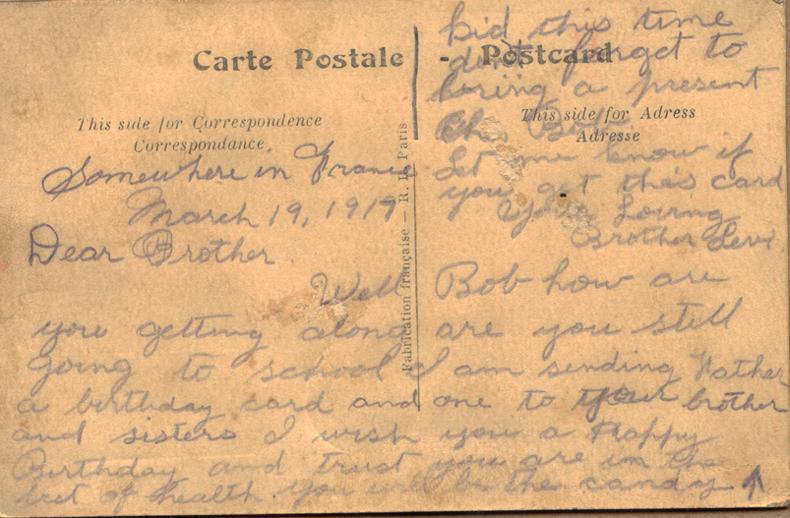 Carte Postale - Postcard
This side for Correspondence
Correspondance.
This side for Adress
Adresse
Fabrication française — R. Paris
Somewhere in France
March 19, 1917
Dear Brother.
Well Bob how are
you getting along are you still
going to school I am sending Father
a birthday card and one to your brother
and sisters I wish you a Happy
Birthday and trust you are in the
best of health. you will be the candy
kid this time
dont forget to
bring a present
Let me know if
you got this card
Your Loving
Brother Levi.